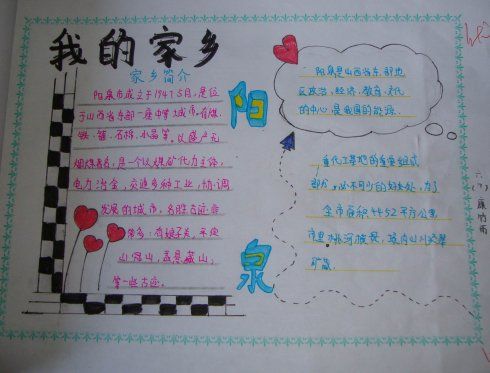 我的家乡
家乡简介
阳泉市成立于1947.5月,是位
于山西省东部一座中等城市。有煤、
铁、铝、石棉、水晶等。以盛产无
烟煤著名,是一个以煤矿化为主体,
电力冶金,交通多种工业,协调
发展的城市,名胜古迹非
常多:有娘子关、平定
山冠山,盂县藏山,
等一些古迹。
阳
泉
阳泉是山西省东部地
区政治、经济、教育、文化
的中心是我国的能源、
重化工基地的重要组成
部分,必不可少的好去处,为了
全市面积4452平方公里
市里
矿藏